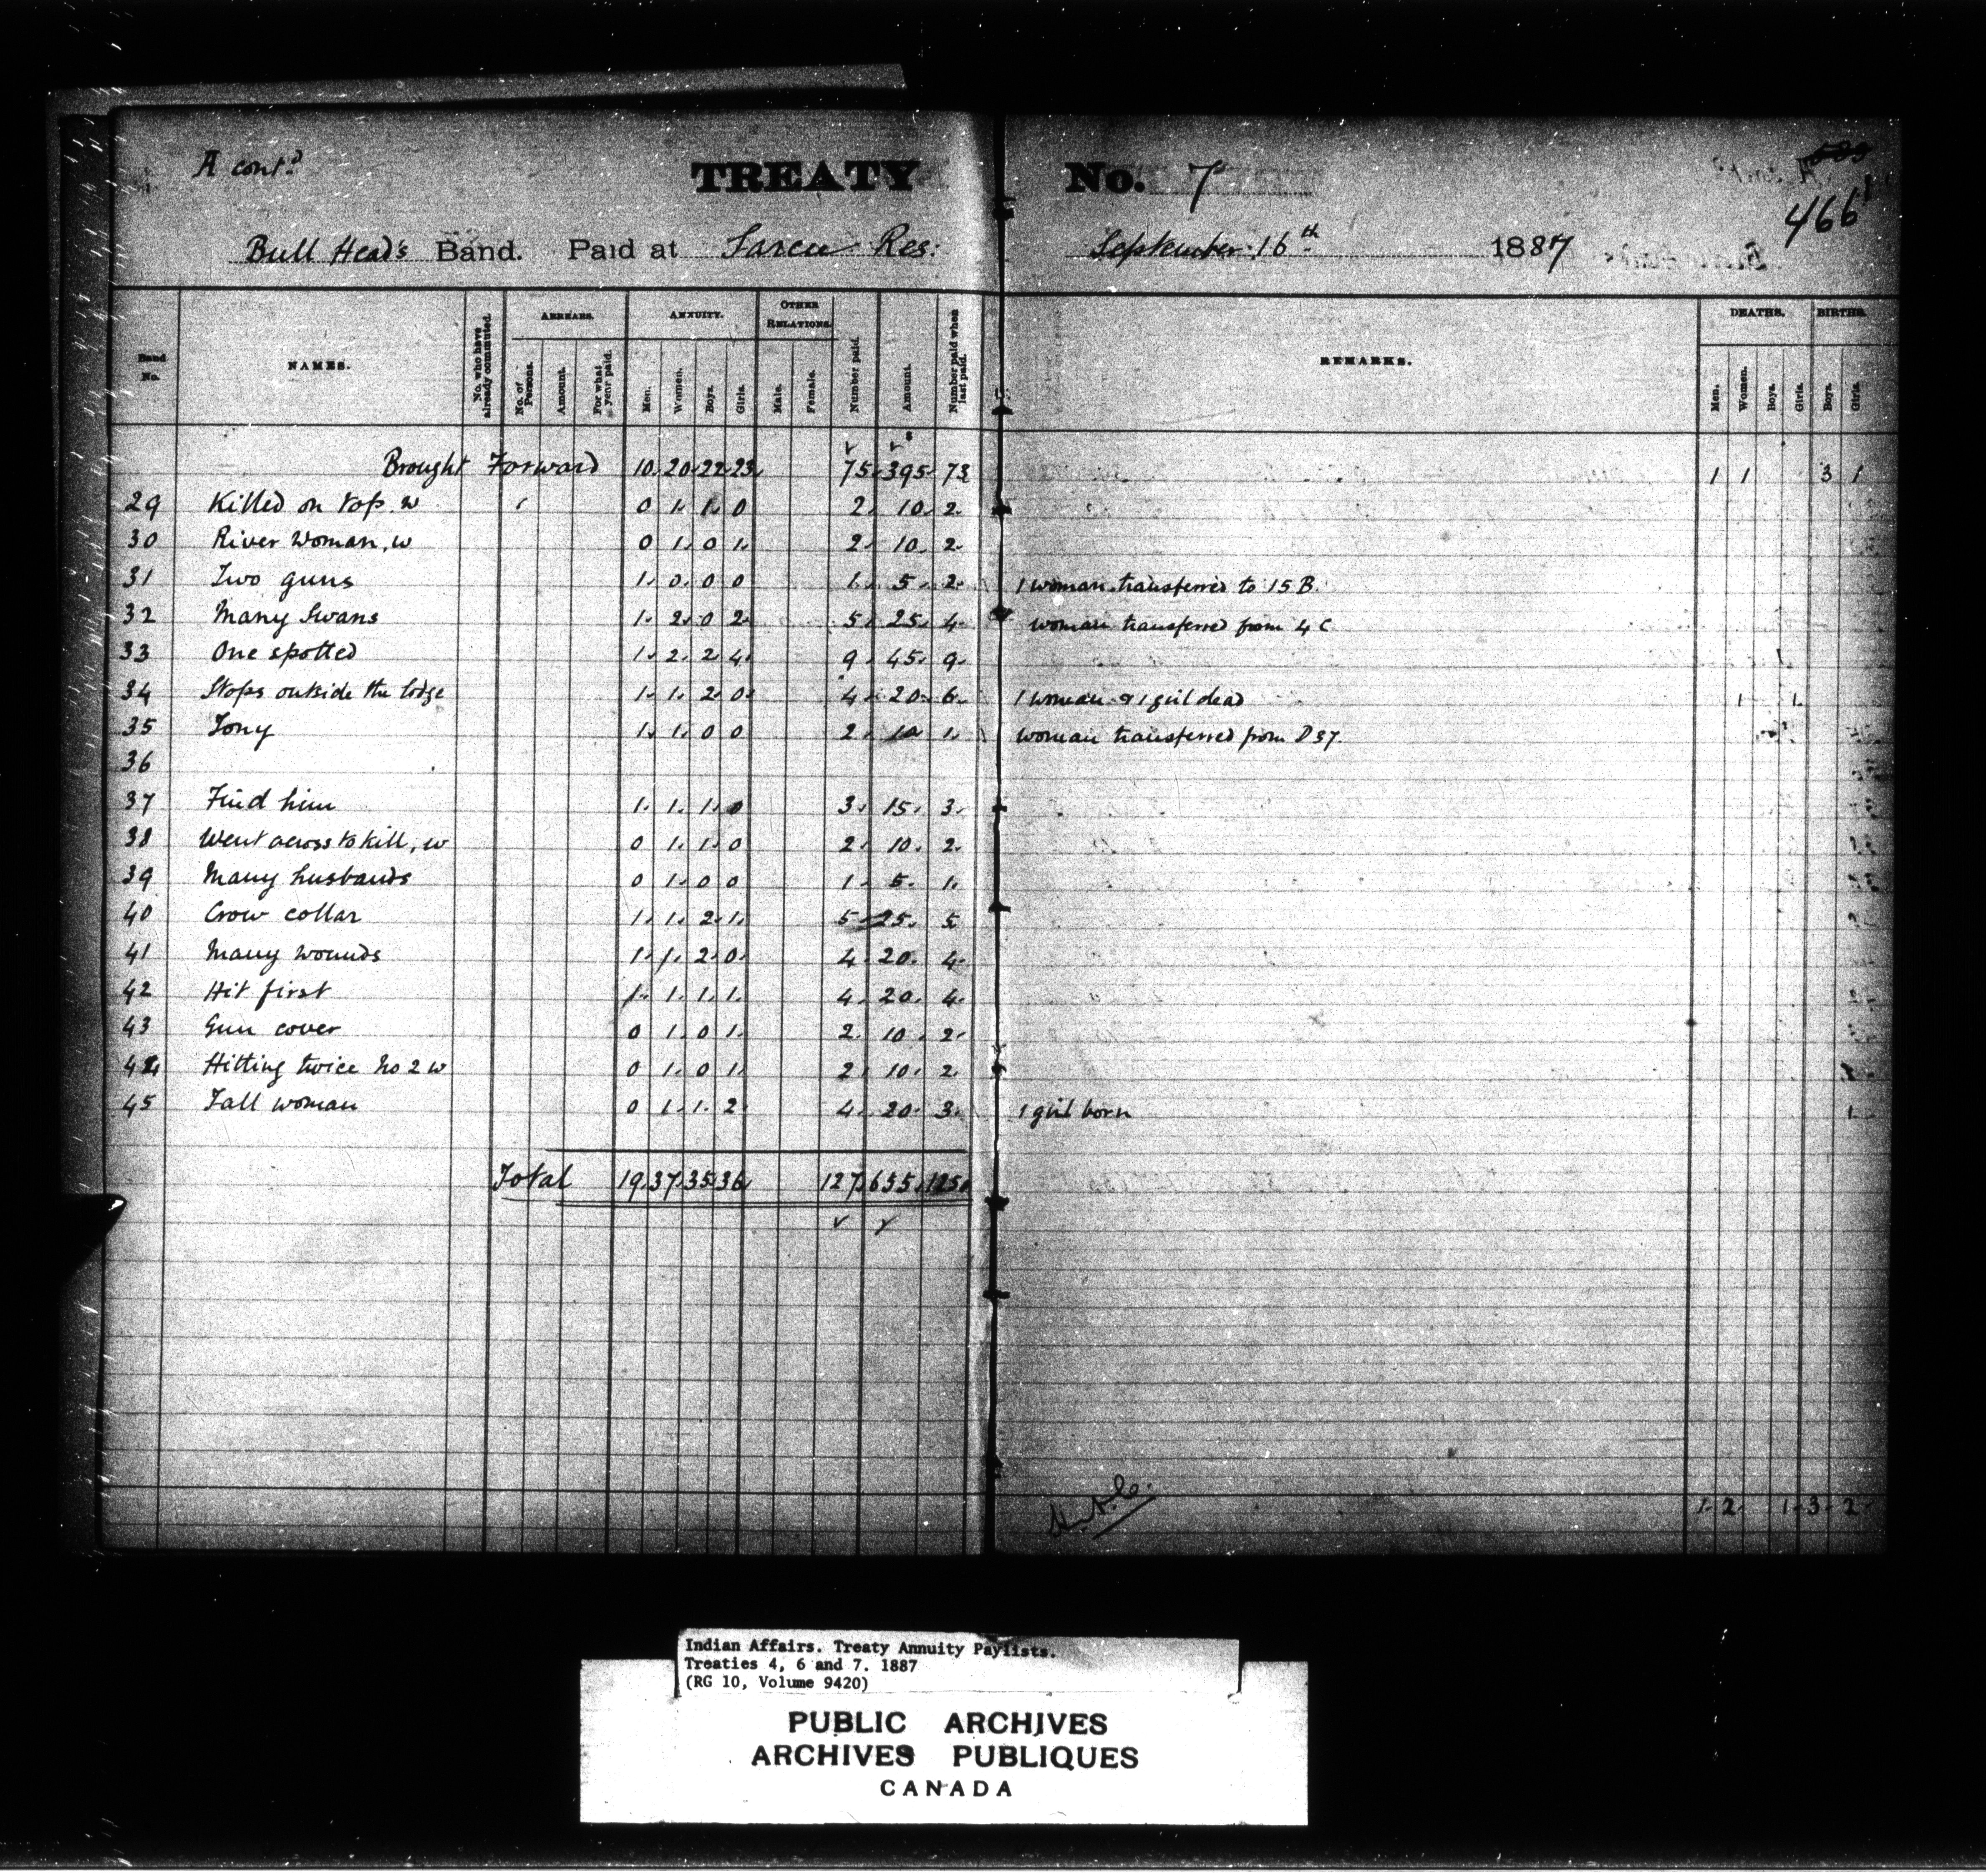 A contd
TREATY No. 7
466
Bull Head's Band. Paid at Sarcee Res: September 16th 1887
Band No.
NAMES.
No. who have already commuted.
ARREARS.
No. of Persons.
Amount.
For what year paid.
ANNUITY.
Men.
Women.
Boys.
Girls.
OTHER RELATIONS.
Male.
Female.
Number paid.
Amount.
Number paid when last paid.
REMARKS.
DEATHS.
Men.
Women.
Boys.
Girls.
BIRTHS.
Boys.
Girls.
Brought Forward 10 20 22 23 75 $395 73 1 1 3 1
29 Killed on top. w 0 1 1 0 2 10 2
30 River Woman, w 0 1 0 1 2 10 2
31 Two guns 1 0 0 0 1 5 2 1 woman transferred to 15 B.
32 Many Swans 1 2 0 2 5 25 4 woman transferred from 4 C
33 One spotted 1 2 2 4 9 45 9
34 Stops outside the lodge 1 1 2 0 4 20 6 1 woman & 1 girl dead 1 1
35 Tony 1 1 0 0 2 10 1 woman transferred from D 37.
36
37 Find him 1 1 1 0 3 15 3
38 Went across to kill, w 0 1 1 0 2 10 2
39 Many husbands 0 1 0 0 1 5 1
40 Crow collar 1 1 2 1 5 25 5
41 Many wounds 1 1 2 0 4 20 4
42 Hit first 1 1 1 1 4 20 4
43 Gun cover 0 1 0 1 2 10 2
44 Hitting twice No 2 w 0 1 0 1 2 10 2
45 Tall woman 0 1 1 2 4 20 3 1 girl born 1
Total 19 37 35 36 127 655 125
1 2 1 3 2
Indian Affairs. Treaty Annuity Paylists.
Treaties 4, 6 and 7. 1887
(RG 10, Volume 9420)
PUBLIC ARCHIVES
ARCHIVES PUBLIQUES
CANADA